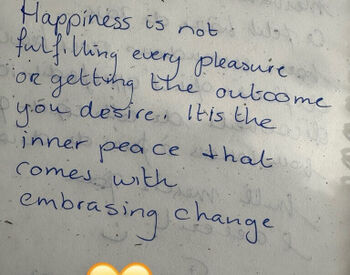 Happiness is not
fulfilling every pleasure
or getting the outcome
you desire. It is the
inner peace that
comes with
embrasing change